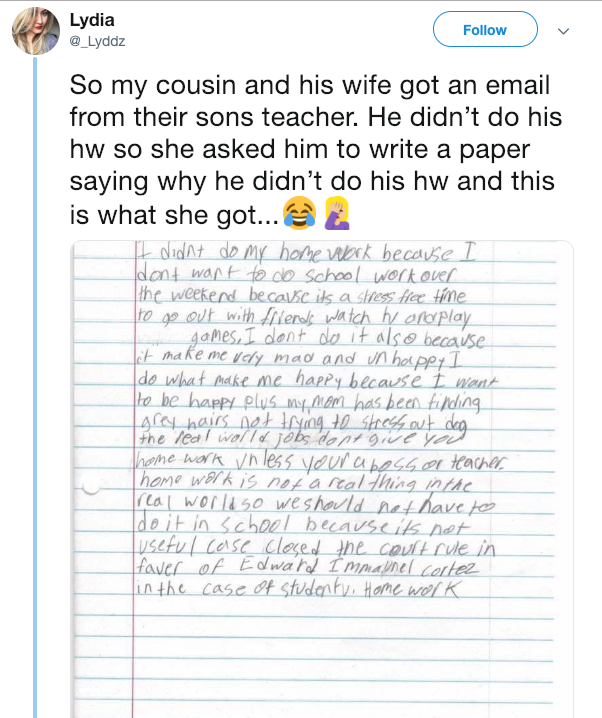 Lydia
@_Lyddz
Follow
So my cousin and his wife got an email
from their sons teacher. He didn’t do his
hw so she asked him to write a paper
saying why he didn’t do his hw and this
is what she got...😂🤦🏼‍♀️
I didnt do my home work because I
dont want to do school work over
the weekend because its a stress free time
to go out with friends watch tv or play
games, I dont do it also because
it make me very mad and unhappy I
do what make me happy because I want
to be happy plus my mom has been finding
grey hairs not trying to stress out dog
the real world jobs dont give you
home work unless your a boss or teacher.
home work is not a real thing in the
real world so we should not have to
do it in school because its not
useful case closed the court rule in
faver of Edward Immanuel Cortez
in the case of student v. Home work